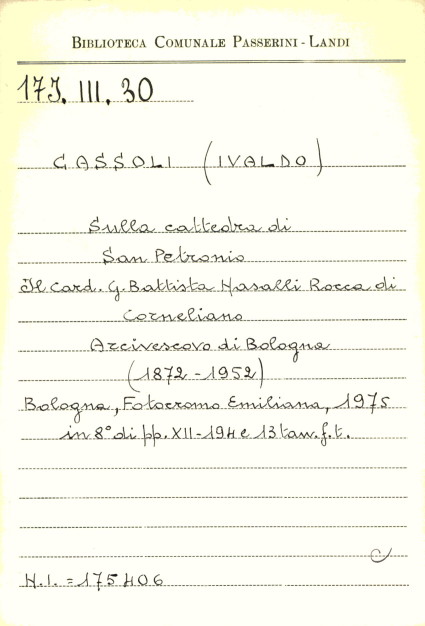 BIBLIOTECA COMUNALE PASSERINI-LANDI
17J. III. 30
CASSOLI (IVALDO)
Sulla cattedra di
San Petronio
Il Card. G. Battista Nasalli Rocca di
Corneliano
Arcivescovo di Bologna
(1872-1952)
Bologna, Fotocromo Emiliana, 1975
in 8° di pp. XII-194 e 13 tav. f. t.
C
N.I. = 175406